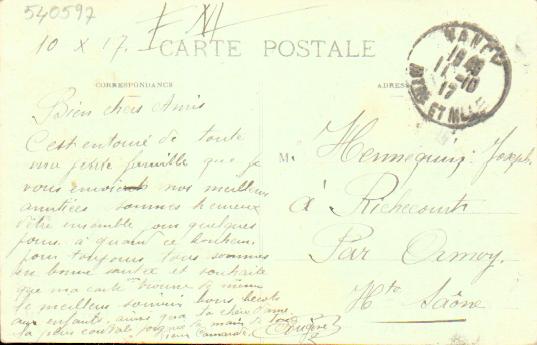 540597
10 X 17.
F XI
CARTE POSTALE
CORRESPONDANCE
ADRESSE
NANCY
18 45
11 - 10
17
MTHE ET MLLE
Bien chers Amis
C'est entouré de toute
ma petite famille que je
vous envoie nos meilleurs
amitiées sommes heureux
d'être ensemble pour quelques
jours à quant ce bonheur
pour toujours tous sommes
en bonne santé et souhaite
que ma carte trouve de même
le meilleur souvenir bons becots
aux enfants ainsi qu'a ta chère dame
ta plus cordiale poignée de main de ton
vieux camarade Eugène
M. Hennequin Joseph
à Richecourt
Par Ormoy
Hte Saône